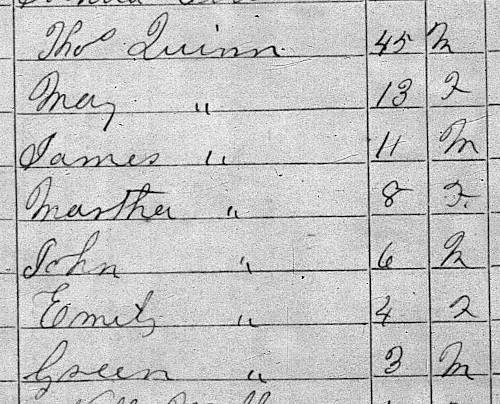 Thos Quinn 45 M
May " 13 F
James " 11 M
Martha " 8 F
John " 6 M
Emily " 4 F
Green " 3 M